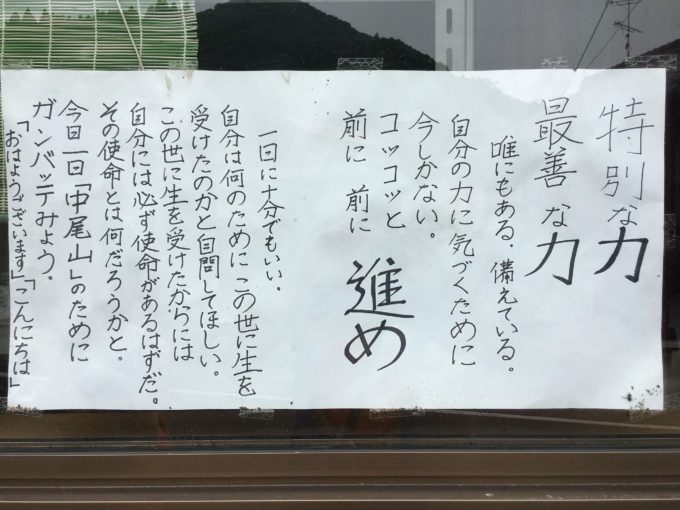 特別な力
最善な力
唯にもある、備えている。
自分の力に気づくために
今しかない。
コツコツと
前に 前に 進め
一日に十分でもいい。
自分は何のために この世に生を
受けたのかと自問してほしい。
この世に生を受けたからには
自分には必ず使命があるはずだ。
その使命とは何だろうかと。
今日一日「中尾山」のために
ガンバッテみよう。
「おはようございます」「こんにちは」